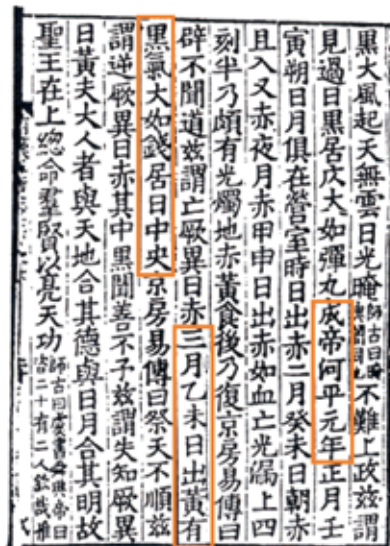 黑大風起天無雲日光晻師古曰晻與闇同不難上政茲謂
見過日黑居仄大如彈丸成帝河平元年正月壬
寅朔日月俱在營室時日出赤二月癸未日朝赤
且入又赤夜月赤甲申日出赤如血亡光漏上四
刻半乃頗有光燭地赤黃食後乃復京房易傳曰
辟不聞道茲謂亡厥異日赤三月乙未日出黃有
黑氣大如錢居日中央京房易傳曰祭天不順茲
謂逆厥異日赤其中黑聞善不予茲謂失知厥異
日黃夫大人者與天地合其德與日月合其明故
聖王在上總命羣賢以亮天功師古曰虞書舜典帝曰咨二十有二人欽哉惟